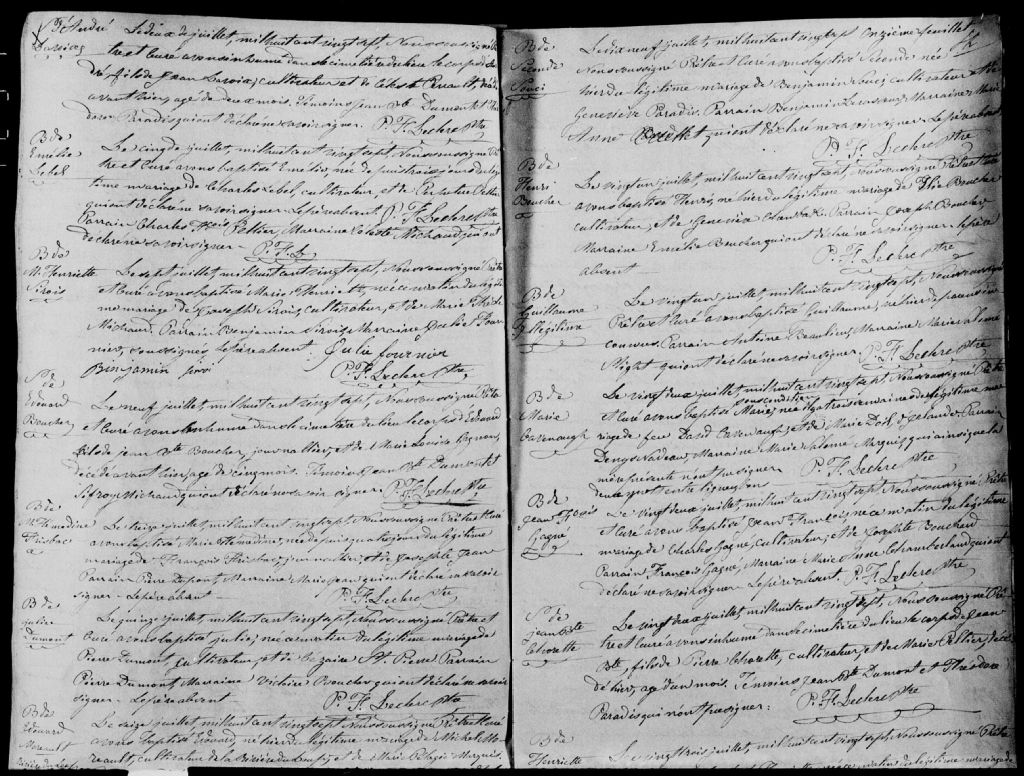 S. André
Le deux de juillet, mil huit cent vingt sept, Nous soussigné
tre et Curé avons inhumé dans le cimetière de ce lieu le corps de
dé, fils de Jean cultivateur et de Celeste Perrault, décédé
avant hier, agé de deux mois. Témoins Jean Bte Dumont et
Paradis qui ont déclaré ne savoir signer. P. F. Leclerc Ptre
B de
Emélie
Lebel
Le cinq de juillet, mil huit cent vingt sept, Nous soussigné
tre et Curé avons baptisé Emelie, née de jour du légi
time mariage de Charles Lebel, cultivateur, et de
qui ont déclaré ne savoir signer. Le père absent. P. F. Leclerc Ptre
Parrain Charles Frçois Pelletier, Marraine Celeste Michaud, qui ont
déclaré ne savoir signer. P. F. L.
B de
M. Henriette
Sirois
Le sept juillet, mil huit cent vingt sept, Nous soussigné Prêtre
et Curé avons baptisé Marie Henriette, née ce matin du légiti
me mariage de Joseph Sirois, cultivateur, et de Marie
Michaud. Parrain Benjamin Sirois, Marraine Julie Four
nier, soussignés, Le père absent. Julie fournier
Benjamin
P. F. Leclerc Ptre
S. de
Edouard
Boucher
Le neuf juillet, mil huit cent vingt sept, Nous soussigné Prêtre
et Curé avons inhumé dans le cimetière du lieu le corps d'Edouard
fils de jean Bte Boucher, journallier, et de Marie Louise Gagnon,
décédé avant hier, agé de cinq mois. Témoins Jean Bte Dumont
Michaud qui ont déclaré ne savoir signer. P. F. Leclerc Ptre
B de
Le treize juillet, mil huit cent vingt sept, Nous soussigné Prêtre et Curé
avons baptisé Marie née depuis quatre jours du légitime
mariage de François journallier, et de Josephte Jean
Parrain Pierre Dupont, Marraine Marie Jean qui ont déclaré ne savoir
signer. Le père absent P. F. Leclerc Ptre
B de
julie
Dumont
Le quinze juillet, mil huit cent vingt sept, Nous soussigné Prêtre et
Curé avons baptisé julie, née ce matin du légitime mariage de
Pierre Dumont, cultivateur, et de Cezaire St. Pierre Parrain
Pierre Dumont, Marraine Victoire Boucher qui ont déclaré ne savoir
signer. Le père absent P. F. Leclerc Ptre
B de
Edouard
Moreault
Le seize juillet, mil huit cent vingt sept, Nous soussigné Prêtre et Curé
avons baptisé Edouard, né hier du légitime mariage de Michel Mo
reault, cultivateur de la Rivière du Loup, et de Marie Pelagie Marquis
Onzième feuillet
B de
Seconde
Souci
Le dix neuf juillet, mil huit cent vingt sept
Nous soussigné Prêtre et Curé avons baptisé Seconde née
hier du légitime mariage de Benjamin Souci, cultivateur et de
Geneviève Paradis. Parrain Benjamin Marraine Marie
Anne qui ont déclaré ne savoir signer. Le père absent
P. F. Leclerc Ptre
B de
Henri
Boucher
Le vingt un juillet, mil huit cent vingt sept, nous soussigné Prêtre et Curé
avons baptisé Henri, né hier du légitime mariage de Elie Boucher
cultivateur, et de Geneviève Parrain Joseph Boucher
Marraine Emelie Boucher qui ont déclaré ne savoir signer. Le père
absent P. F. Leclerc Ptre
B de
Guillaume
Illégitime
Le vingt un juillet, mil huit cent vingt sept, Nous soussigné
Prêtre et Curé avons baptisé Guillaume, né hier de parens in
connus. Parrain Antoine Beaulieu, Marraine Marie Salomé
qui ont déclaré ne savoir signer. P. F. Leclerc Ptre
B de
Marie
Cavenaugh
Le vingt deux juillet, mil huit cent vingt sept, Nous soussigné Prêtre
sous condition
et Curé avons baptisé Marie, née il y a trois semaines du légitime ma
riage de feu David Cavenaugh et de Marie d'Irlande. Parrain
Denys Nadeau, Marraine Marie Salomé Marquis, qui ainsi que la
mère présente n'ont pu signer.
deux mots entre lignes bon P. F. Leclerc Ptre
B de
Jean Frçois
Gagné
Le vingt deux juillet, mil huit cent vingt sept, Nous soussigné Prêtre
et Curé avons baptisé Jean François né ce matin du légitime
mariage de Charles Gagné, cultivateur, et de Josephte Bouchard
Parrain François Gagné, Marraine Marie Chamberland qui ont
déclaré ne savoir signer. Le père absent. P. F. Leclerc Ptre
S. de
jean Bte
Chorette
Le vingt deux juillet, mil huit cent vingt sept, Nous soussigné Prê
tre et Curé avons inhumé dans le cimetière du lieu le corps de Jean
Bte, fils de Pierre Chorette, cultivateur, et de Marie Pelletier, décé
dé hier, agé d'un mois. Témoins Jean Bte Dumont et Théodore
Paradis qui n'ont pu signer. P. F. Leclerc Ptre
B de
Henriette
Le vingt trois juillet, mil huit cent vingt sept, Nous soussigné Prêtre